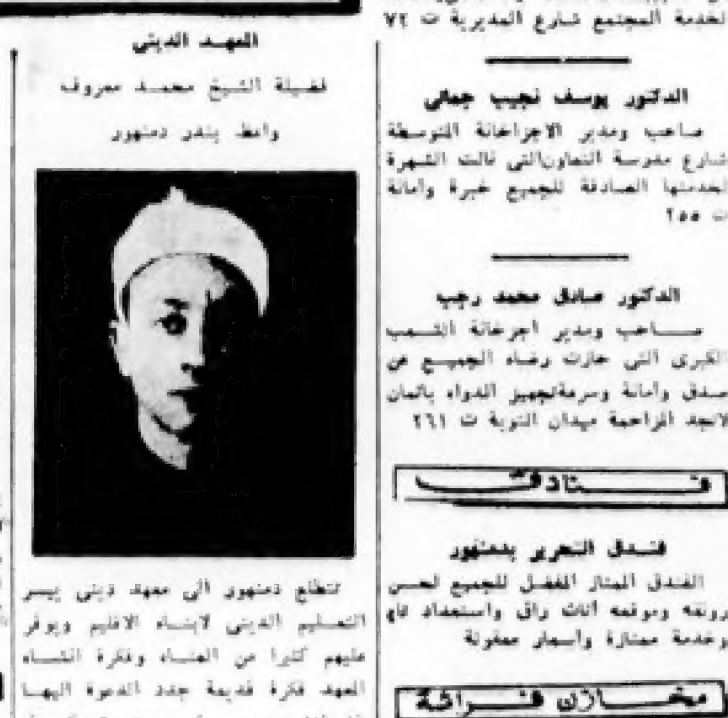 لخدمة المجتمع شارع المديرية ت ٧٢
الدكتور يوسف نجيب جمالى
صاحب ومدير الاجزاخانة المتوسطة
شارع مدرسة التعاون التى نالت الشهرة
لخدمتها الصادقة للجميع خبرة وأمانة
ت ٢٥٥
الدكتور صادق محمد رجب
صاحب ومدير اجزخانة الشعب
الكبرى التى حازت رضاء الجميع عن
صدق وأمانة وسرعة تجهيز الدواء باثمان
لاتجد المزاحمة ميدان التوبة ت ٢٦١
فنادق
فندق التحرير بدمنهور
الفندق الممتاز المفضل للجميع لحسن
رونقه وموقعه أثاث راق واستعداد
وخدمة ممتازة وأسعار معقولة
مخازن فراشة
المعهد الدينى
فضيلة الشيخ محمد معروف
واعظ بندر دمنهور
تتطلع دمنهور الى معهد دينى ييسر
التعليم الدينى لابناء الاقليم ويوفر
عليهم كثيرا من العناء وفكرة انشاء
المعهد فكرة قديمة جدد الدعوة اليها